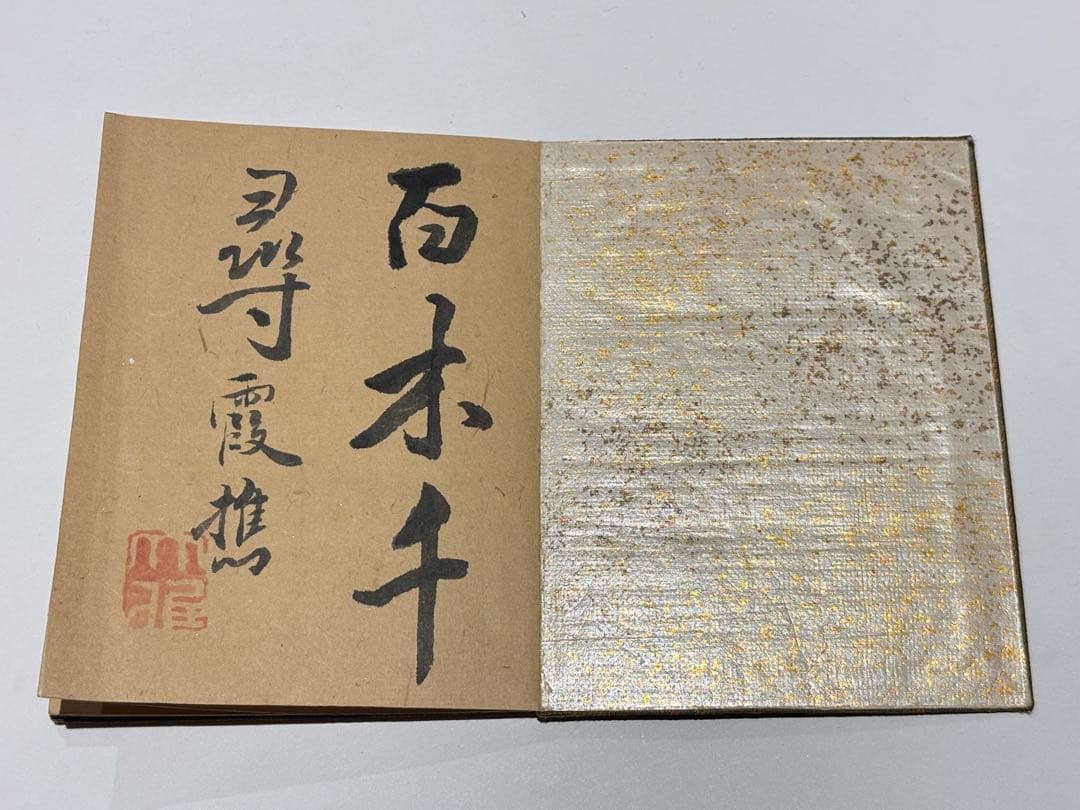 百木千
尋霞樵